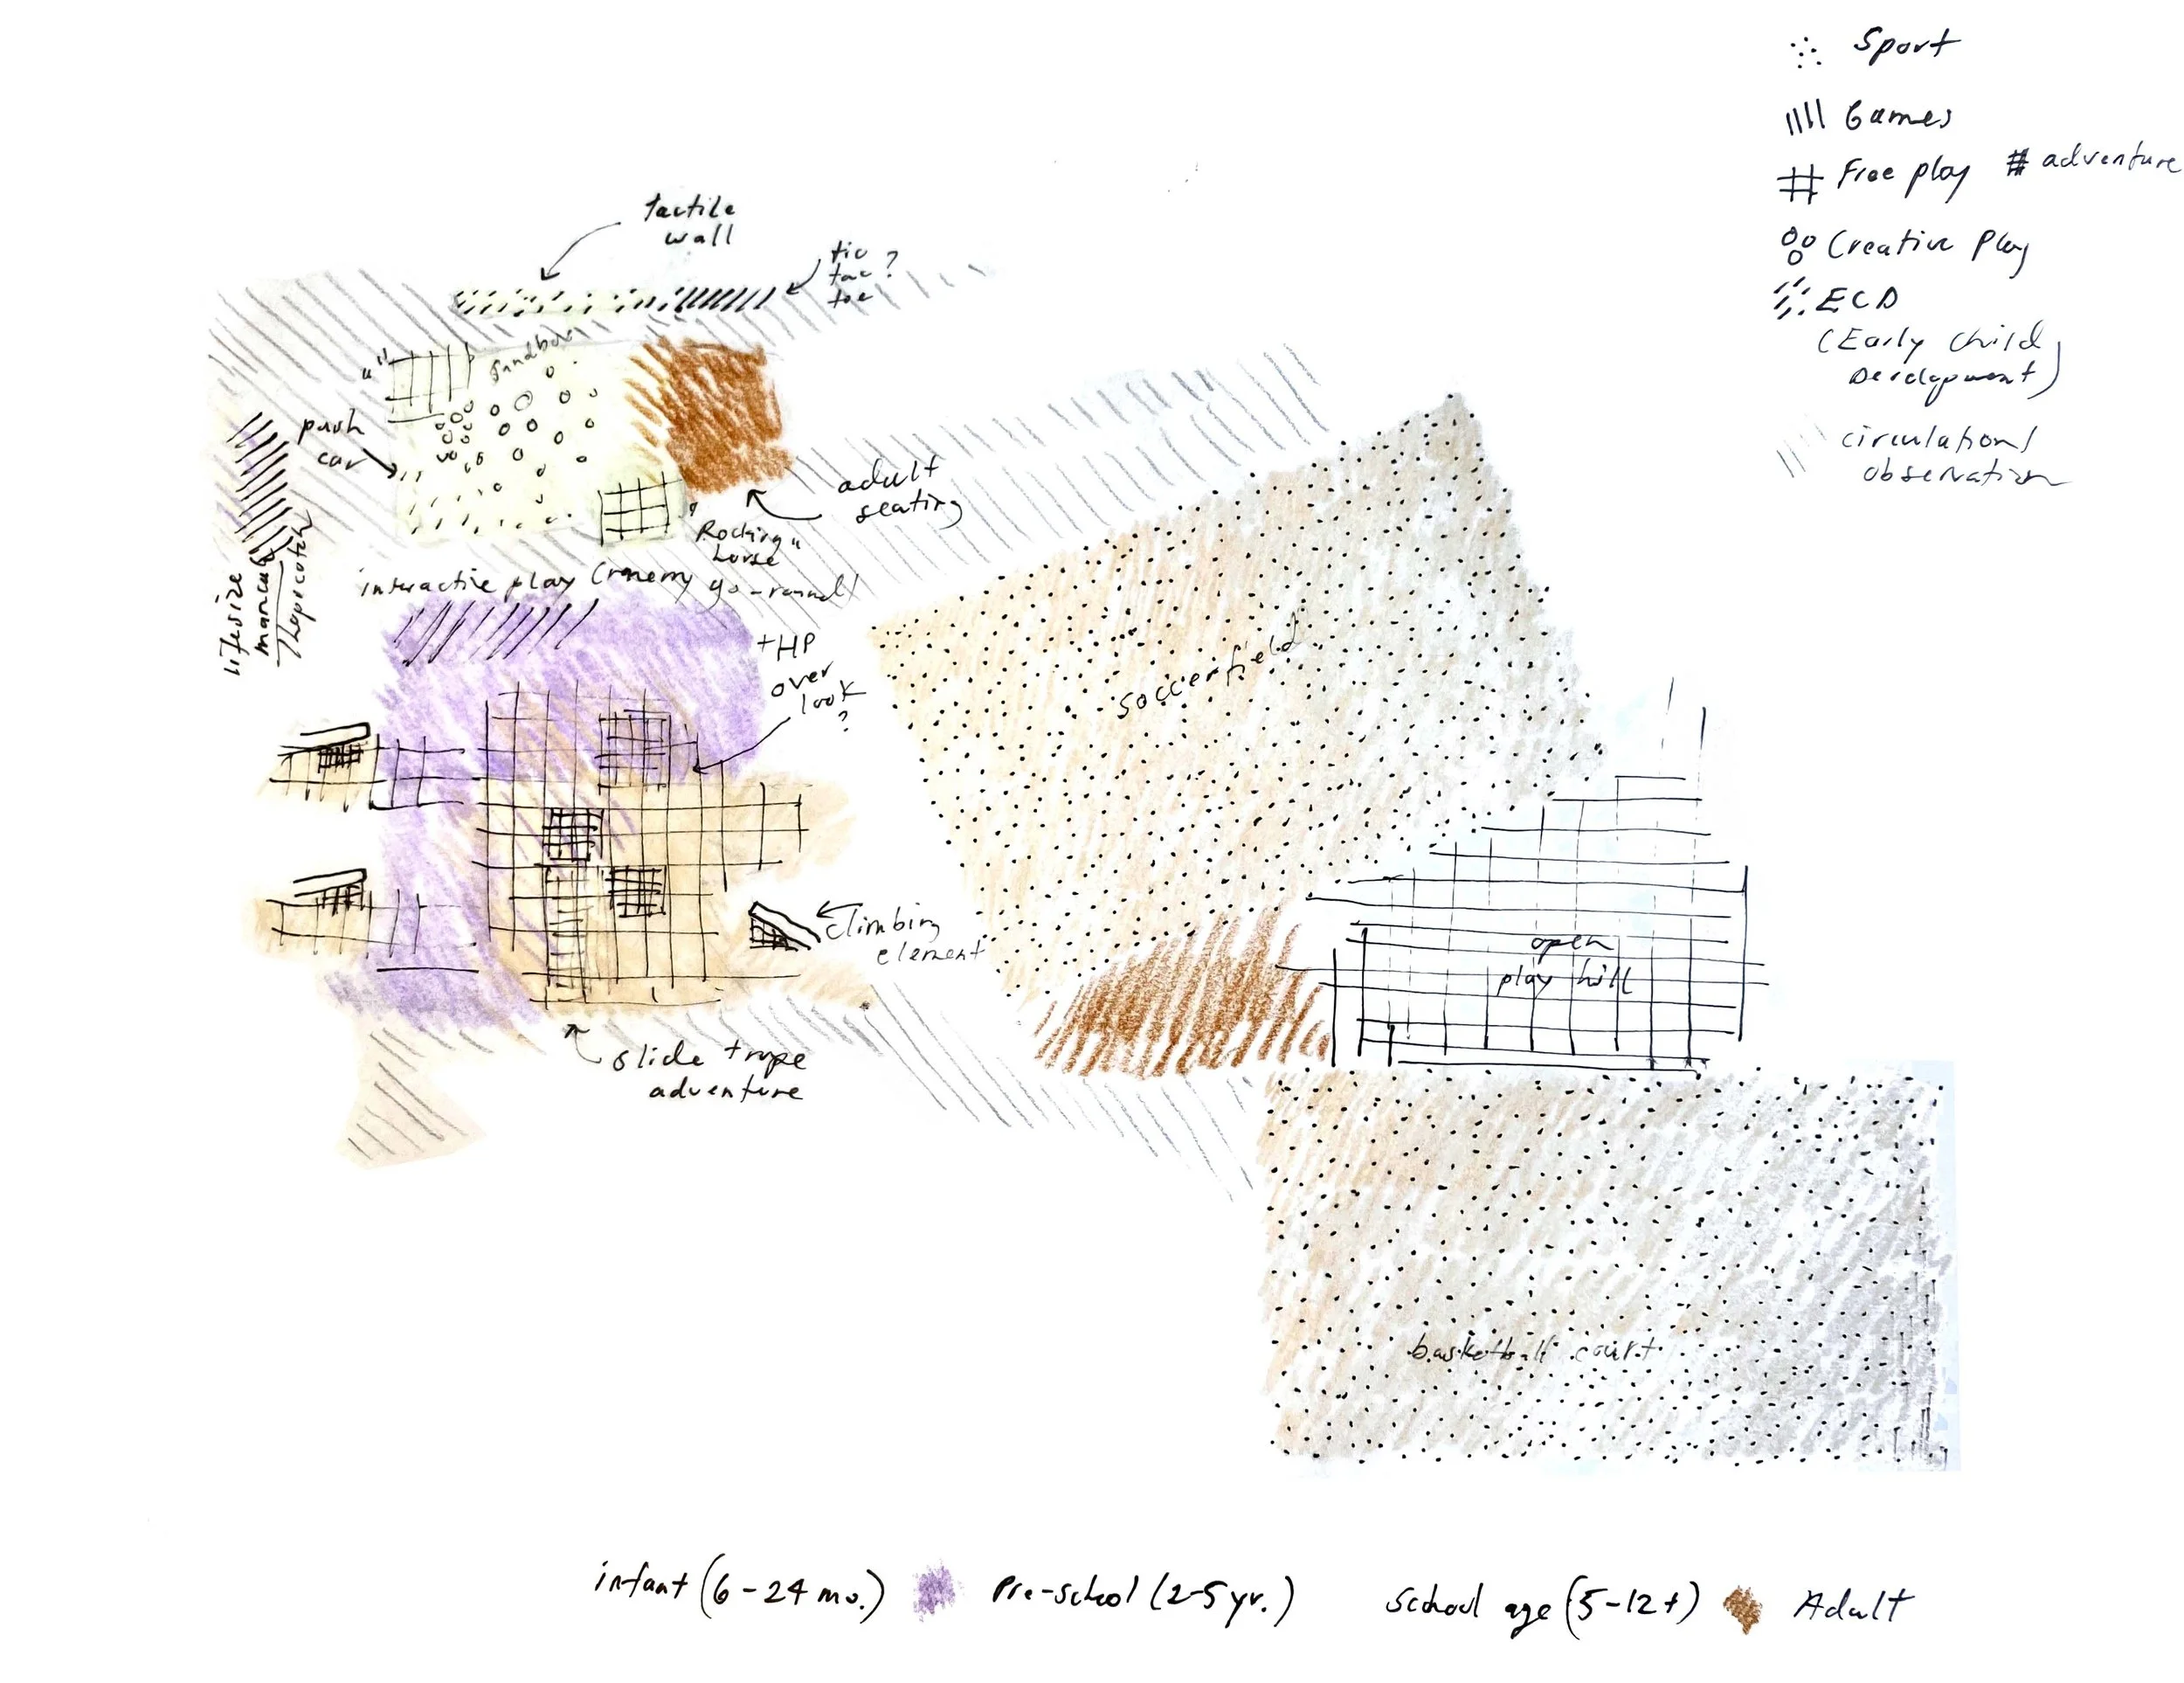 Sport
Games
Free play # adventure
Creative Play
ECD
(Early Child
Development)
circulation/
observation
tactile
wall
tic
tac ?
toe
sandbox
push
car
adult
seating
Rocking
horse
interactive play (merry go-round)
lifesize
mancula
+HP
over
look
?
soccerfield
climbing
element
open
play hill
slide + rope
adventure
basketball court
infant (6-24 mo.) Pre-school (2-5 yr.) School age (5-12+) Adult